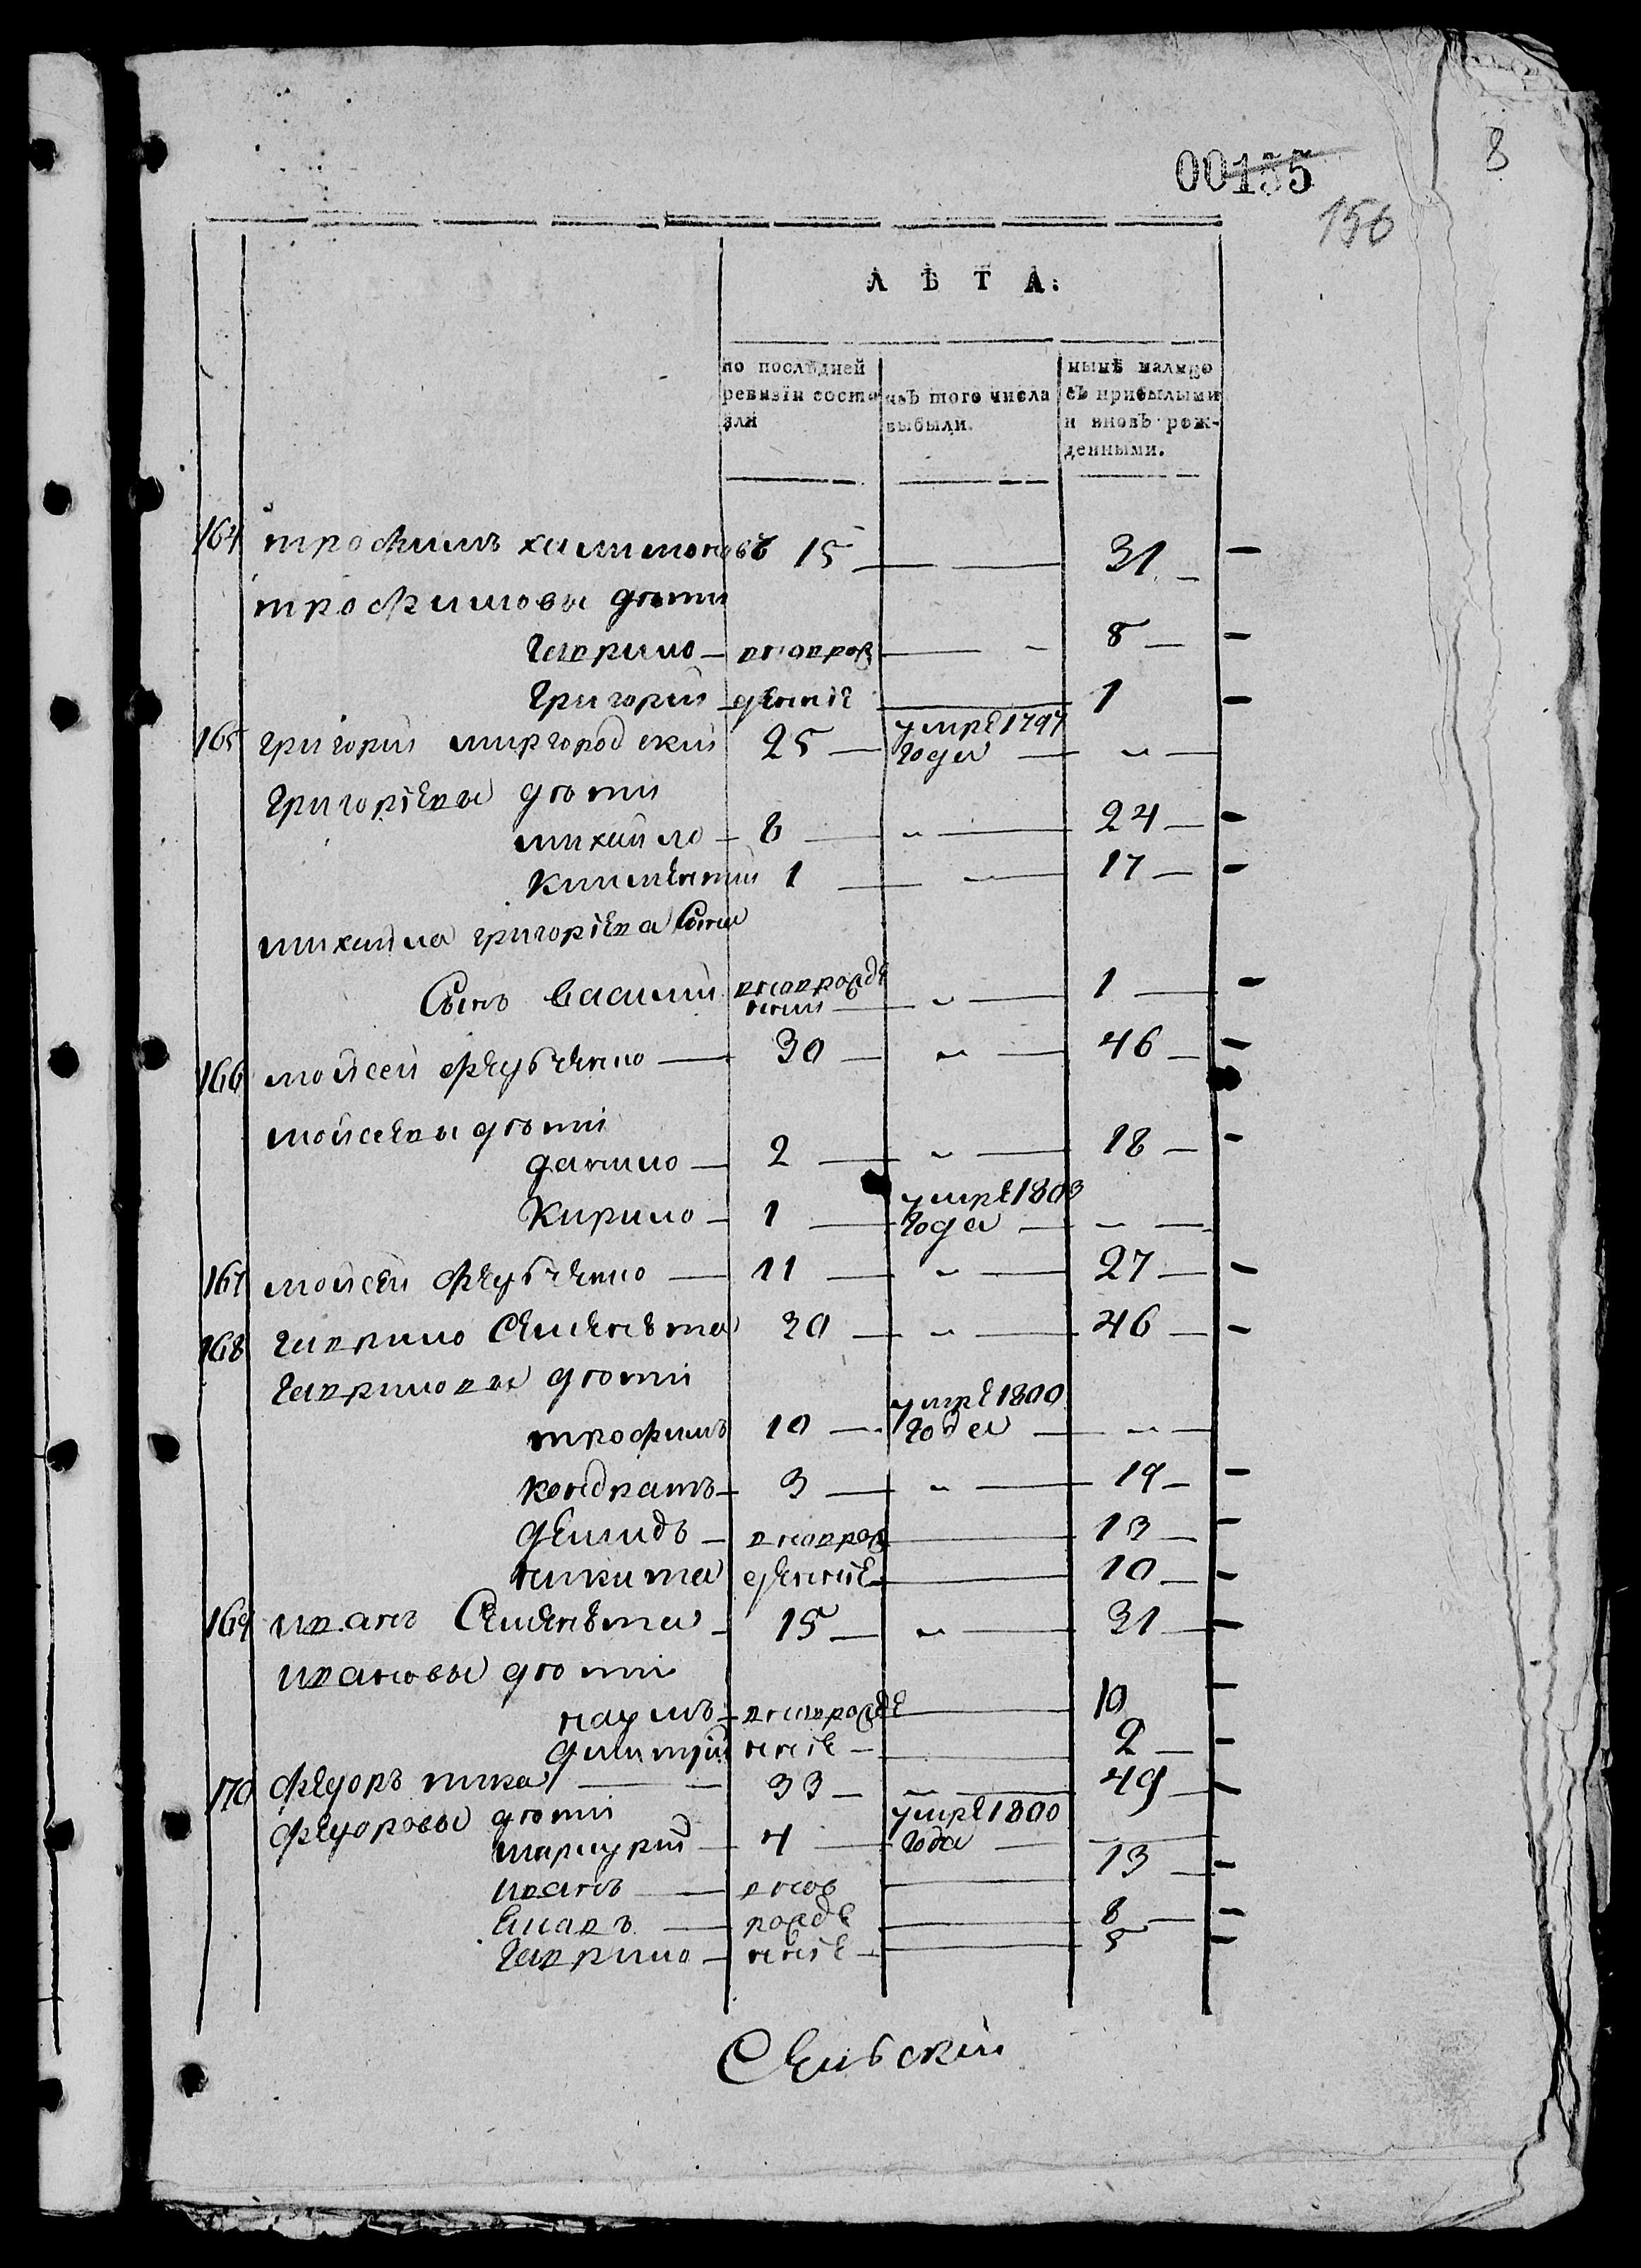 8
00155
156
ЛѢТА:
по послѣдней ревизїи состояли
изъ того числа выбыли.
нынѣ налицо съ прибылыми и вновь рожденными.
164 трофимъ халимоновъ 15 — 31
трофимовы дѣти
гаврило — вновьрож — 8
григорий деніе — 1
165 григорий миргородский 25 — умре 1797 года —
григоріевы дѣти
михайло — 8 — 24
Климентий 1 — 17
михайла григоріева Сына
Сынъ василий вновьрожде ний — 1
166 мойсей — 30 — 46
мойсеевы дѣти
данило — 2 — 18
Кирило — 1 — умре 1803 года —
167 мойсей — 11 — 27
168 гаврило 30 — 46
гавриловы дѣти
трофимъ 10 — умре 1800 года —
кондратъ — 3 — 19
демидъ — вновьрож — 13
никита деніе — 10
169 иванъ 15 — 31
ивановы дѣти
наумъ — вноврожде — 10
димитрий ніе — 2
170 федоръ 33 — 49
федоровы дѣти
меркурий 4 — умре 1800 года —
иванъ — внов — 13
рожде — 8
гаврило — ніе — 5